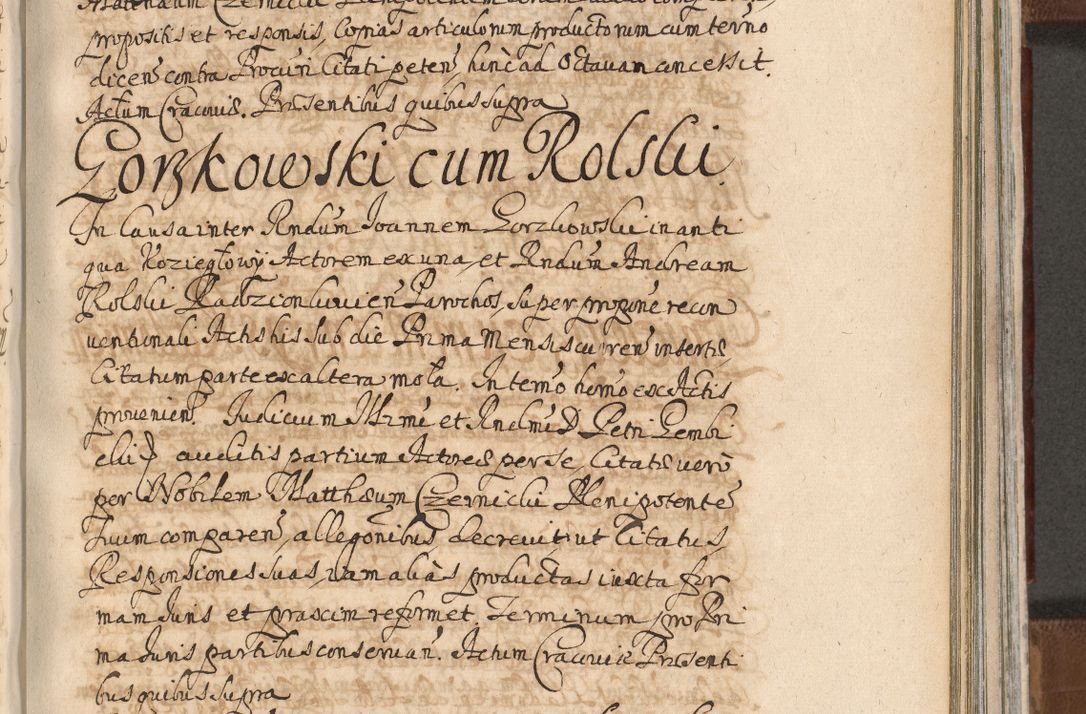 propositis et responsis, Copias articulorum productorum cum termo
dicen contra Procur Citati peten, hinc ad Octavam concessit.
Actum Cracoviæ. Præsentibus quibus supra
Gorzkowski cum Rolski.
In Causa inter Rndum Joannem Gorzkowski in anti
qua Koziegłowy Actorem ex una, et Rndum Andream
Rolski Radozionkuvien Parochos, super propone recon
ventionali Actis his sub die Prima Mensis curren insertæ,
Citatum parte ex altera mota. In termo hemo ex Actis
provenien. Judicium Illrmi et Rndmi D Petri Gembi
cki auditis partium Actoreæ per se, Citatæ vero
per Nobilem Matthæum Czernicki Plenipotente
suum comparen, allegonibus, decrevit, ut Citatus,
Responsiones suas, iam aliàs productas iuxta for
mam Juris et praxim reformet. Terminum pro Pri
ma Juris partibus conservan. Actum Cracoviæ Præsenti
bus quibus supra